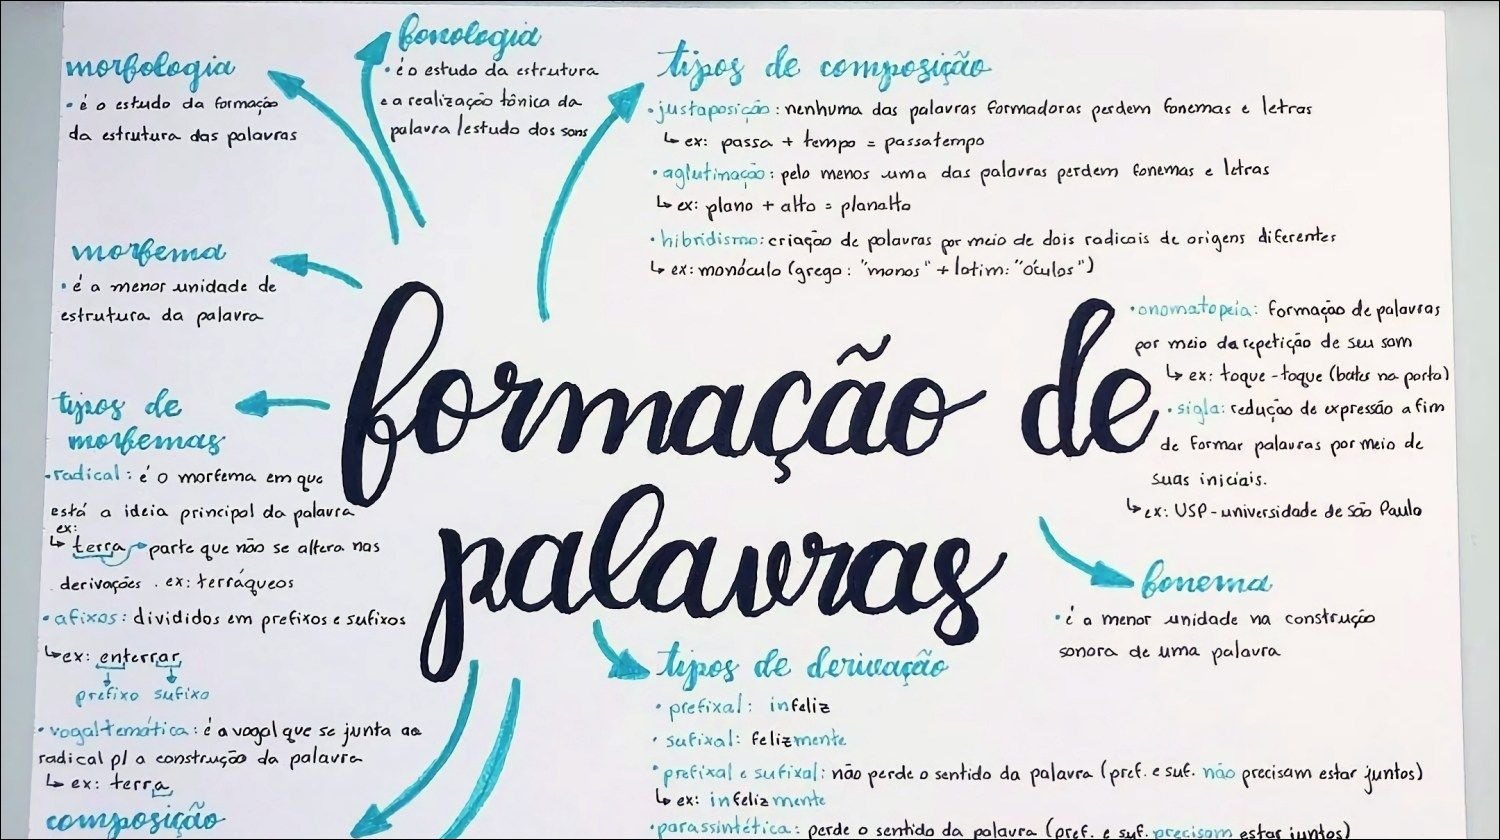 fonologia
• é o estudo da estrutura
e a realização tônica da
palavra / estudo dos sons
morfologia
• é o estudo da formação
da estrutura das palavras
tipos de composição
• justaposição: nenhuma das palavras formadoras perdem fonemas e letras
↳ ex: passa + tempo = passatempo
• aglutinação: pelo menos uma das palavras perdem fonemas e letras
↳ ex: plano + alto = planalto
• hibridismo: criação de palavras por meio de dois radicais de origens diferentes
↳ ex: monóculo (grego: "monos" + latim: "óculos")
• onomatopeia: formação de palavras
por meio da repetição de seu som
↳ ex: toque-toque (bater na porta)
• sigla: redução de expressão a fim
de formar palavras por meio de
suas iniciais.
↳ ex: USP - universidade de são Paulo
morfema
• é a menor unidade de
estrutura da palavra
formação de
palavras
tipos de
morfemas
• radical: é o morfema em que
está a ideia principal da palavra
ex:
↳ terra → parte que não se altera nas
derivações. ex: terráqueos
• afixos: divididos em prefixos e sufixos
↳ ex: enterrar
prefixo sufixo
• vogal temática: é a vogal que se junta ao
radical p/ a construção da palavra
↳ ex: terra
composição
fonema
• é a menor unidade na construção
sonora de uma palavra
tipos de derivação
• prefixal: infeliz
• sufixal: felizmente
• prefixal e sufixal: não perde o sentido da palavra (pref. e suf. não precisam estar juntos)
↳ ex: infelizmente
• parassintética: perde o sentido da palavra (pref. e suf. precisam estar juntos)